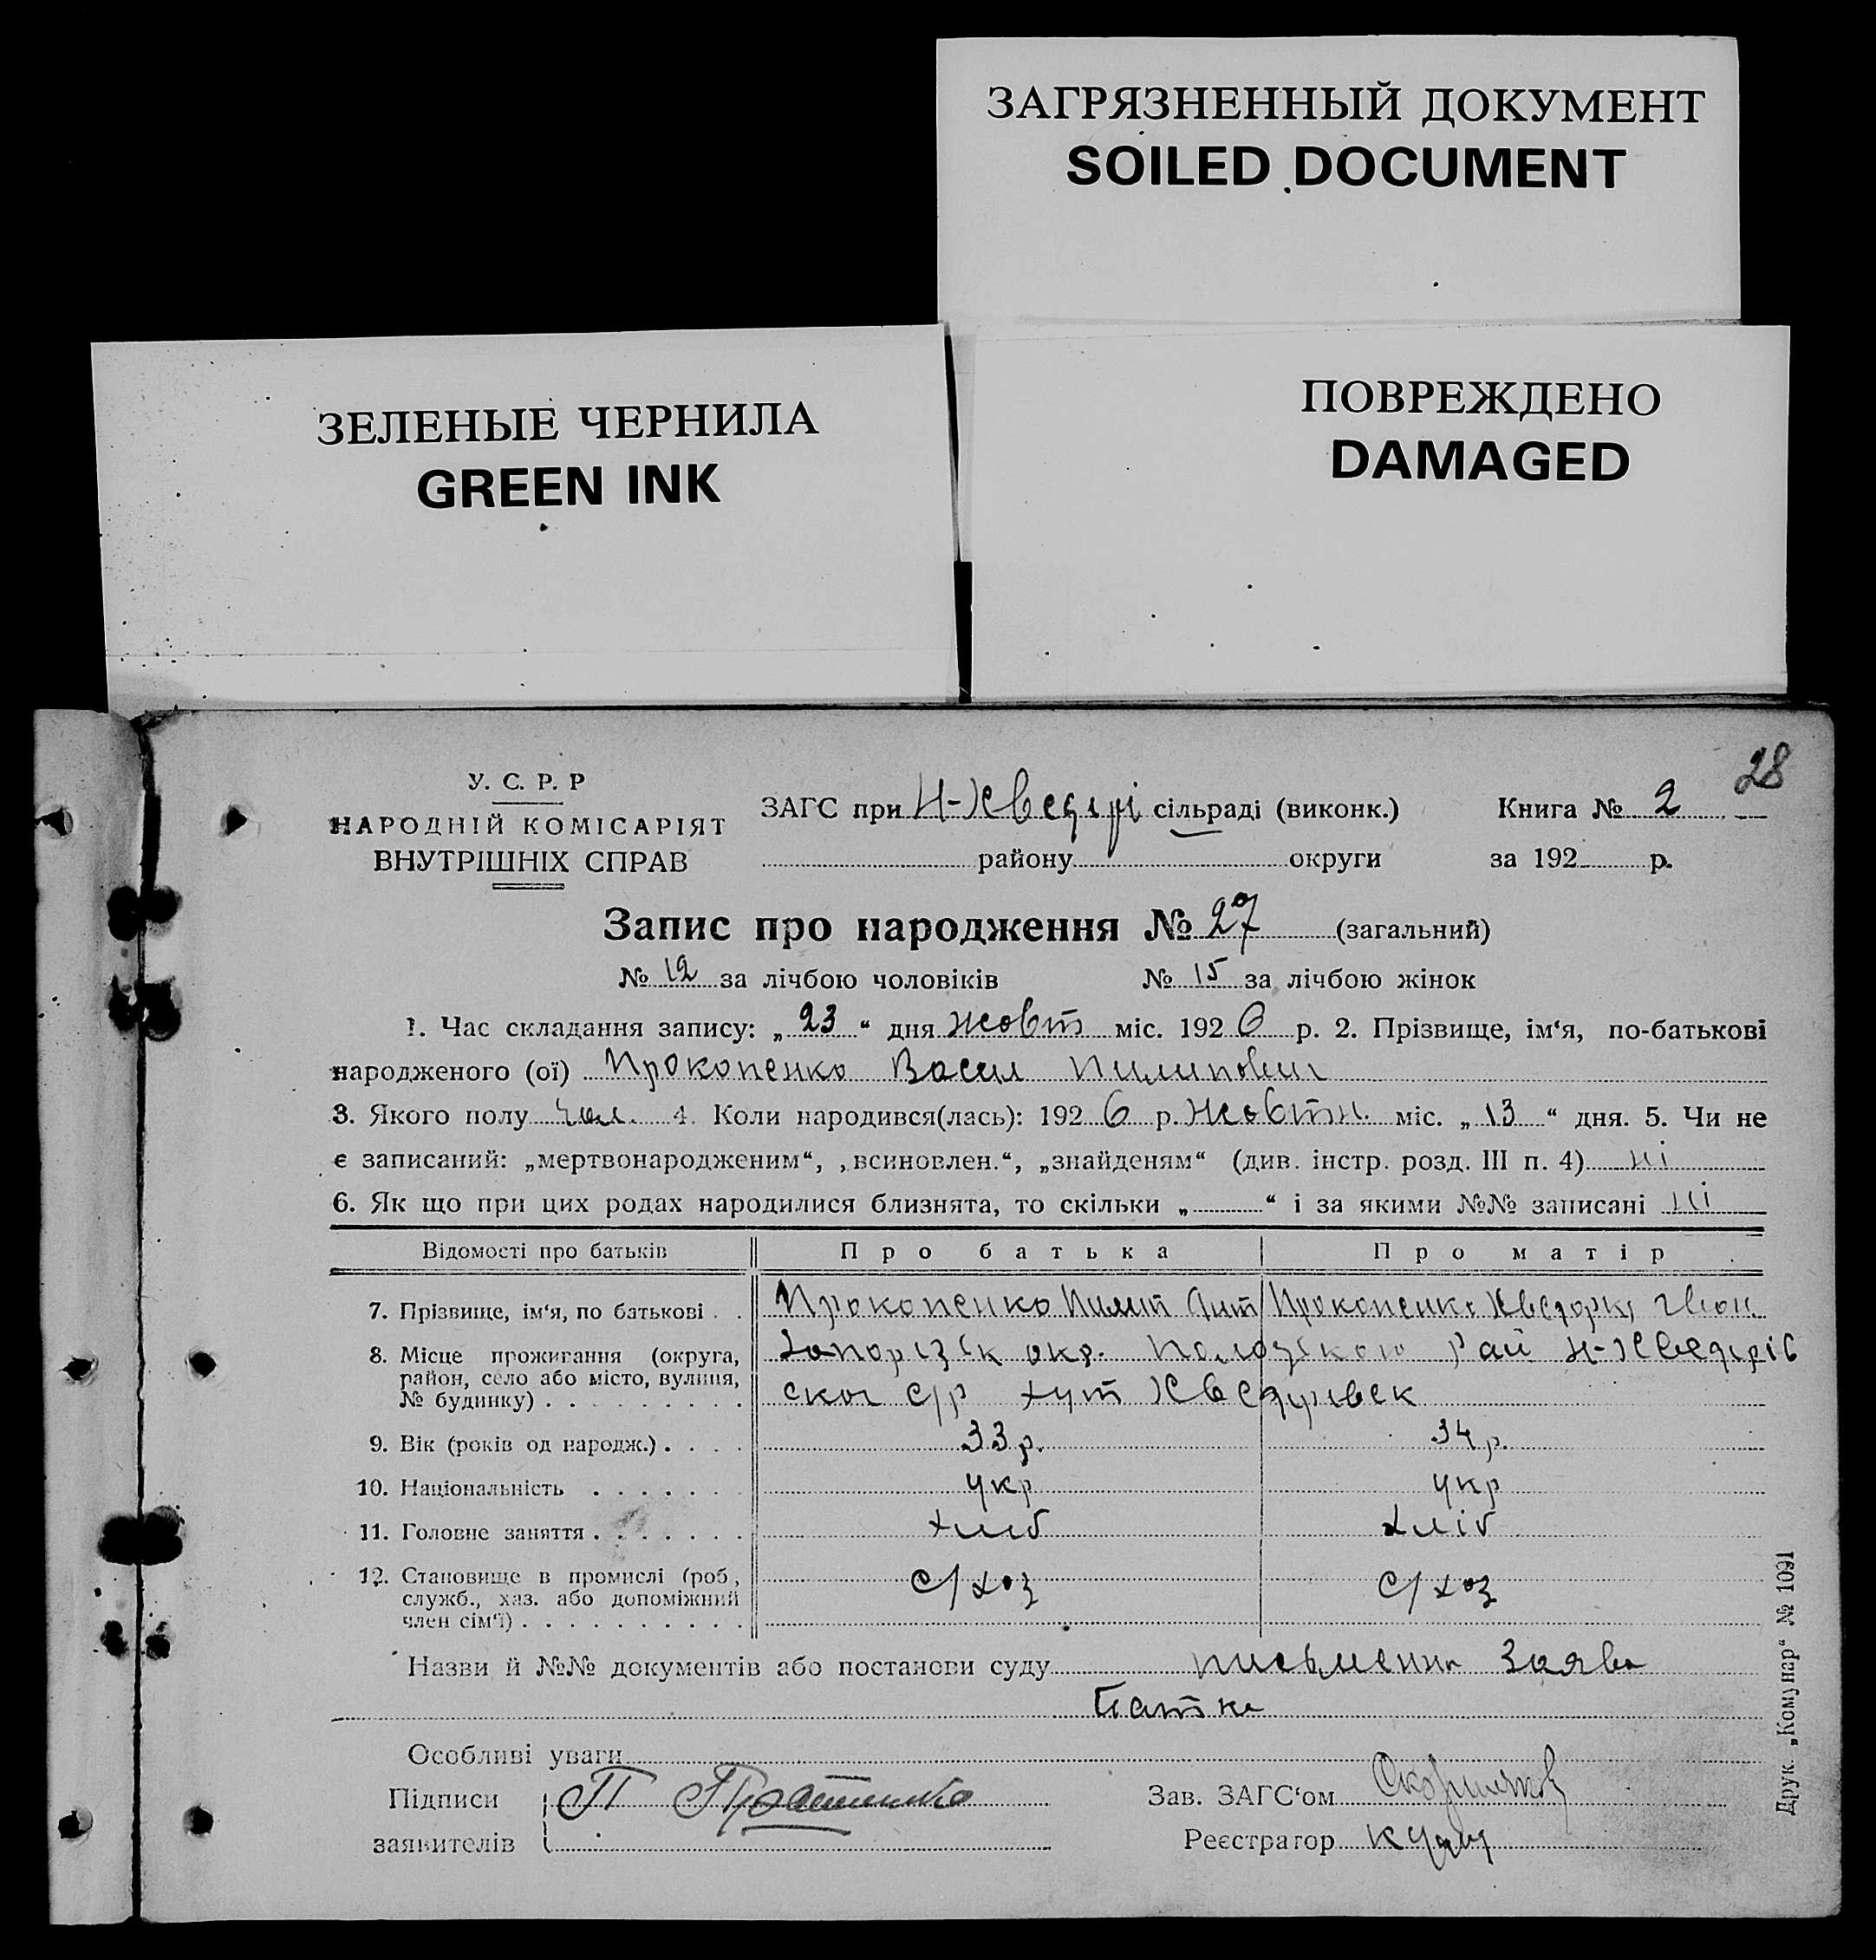 ЗАГРЯЗНЕННЫЙ ДОКУМЕНТ
SOILED DOCUMENT
ЗЕЛЕНЫЕ ЧЕРНИЛА
GREEN INK
ПОВРЕЖДЕНО
DAMAGED
28
У. С. Р. Р
НАРОДНІЙ КОМІСАРІЯТ
ВНУТРІШНІХ СПРАВ
ЗАГС при Н-Хведірі сільраді (виконк.) Книга № 2
району округи за 192 р.
Запис про народження № 27 (загальний)
№ 12 за лічбою чоловіків № 15 за лічбою жінок
1. Час складання запису: „ 23 “ дня жовт міс. 192 6 р. 2. Прізвище, ім‘я, по-батькові
народженого (ої) Прокопенко Васил Пилипович
3. Якого полу чол. 4. Коли народився(лась): 192 6 р. Жовтн. міс. „ 13 “ дня. 5. Чи не
є записаний: „мертвонародженим“, „всиновлен.“, „знайденям“ (див. інстр. розд. III п. 4) ні
6. Як що при цих родах народилися близнята, то скільки „ “ і за якими №№ записані ні
Відомості про батьків Про батька Про матір
7. Прізвище, ім‘я, по батькові . . Прокопенко Пилип Ант Прокопенко Хведорка Іван
8. Місце проживання (округа, Запорізьк окр. Пологського Рай Н-Хведірів
район, село або місто, вулиця, ског с/р хут Хведірівск
№ будинку) . . . . . . . . .
9. Вік (років од народж.) . . . . 33 р. 34 р.
10. Національність . . . . . . . укр укр
11. Головне заняття . . . . . . . хліб хліб
12. Становище в промислі (роб., с/хоз с/хоз
служб., хаз. або допоміжний
член сім‘ї) . . . . . . . . . .
Назви й №№ документів або постанови суду письменна Заява
батька
Особливі уваги
Підписи П
заявителів
Зав. ЗАГС‘ом
Реєстратор
Друк. „Комунар“ № 1091